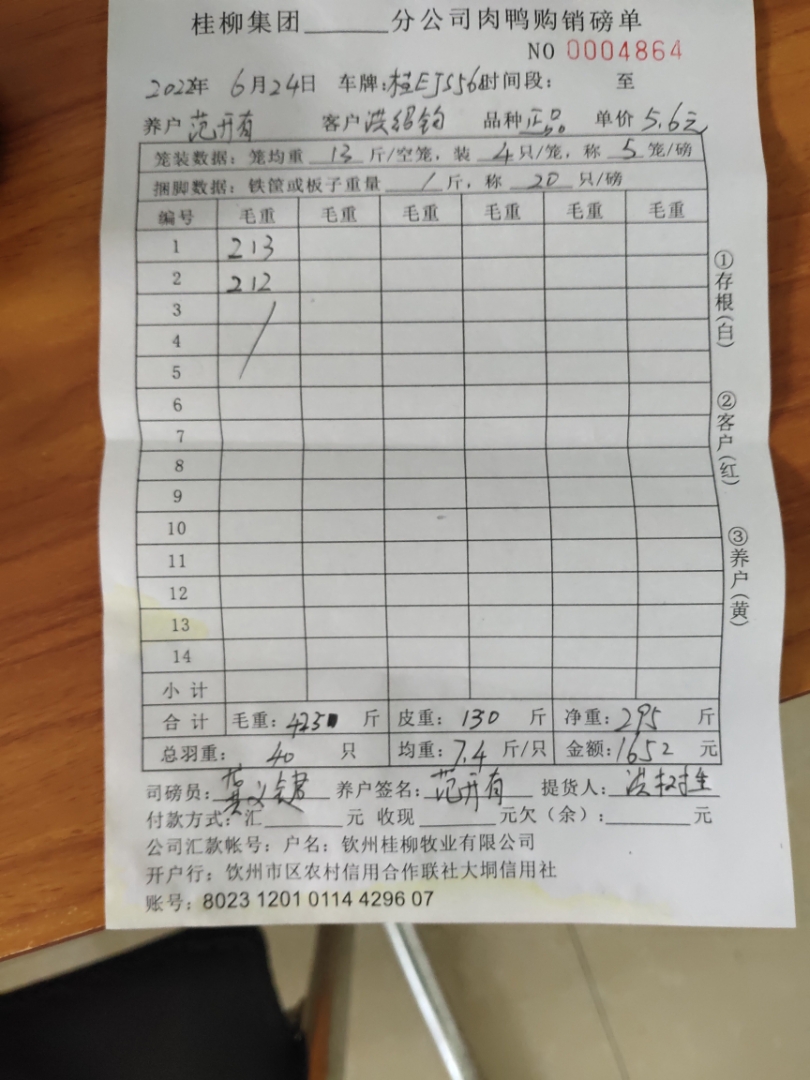 桂柳集团______分公司肉鸭购销磅单
NO 0004864
2022年 6月24日 车牌:桂EJS56 时间段: 至
养户 范开有 客户 洪绍钧 品种 正品 单价 5.6元
笼装数据: 笼均重 13 斤/空笼, 装 4 只/笼, 称 5 笼/磅
捆脚数据: 铁筐或板子重量 / 斤, 称 20 只/磅
编号 毛重 毛重 毛重 毛重 毛重 毛重
1 213
2 212
3
4
5
6
7
8
9
10
11
12
13
14
小计
合计 毛重: 425 斤 皮重: 130 斤 净重: 295 斤
总羽重: 40 只 均重: 7.4 斤/只 金额: 1652 元
司磅员: 养户签名: 范开有 提货人: 洪
付款方式: 汇______元 收现______元欠(余):______元
公司汇款帐号: 户名: 钦州桂柳牧业有限公司
开户行: 钦州市区农村信用合作联社大垌信用社
账号: 8023 1201 0114 4296 07
①存根(白)
②客户(红)
③养户(黄)